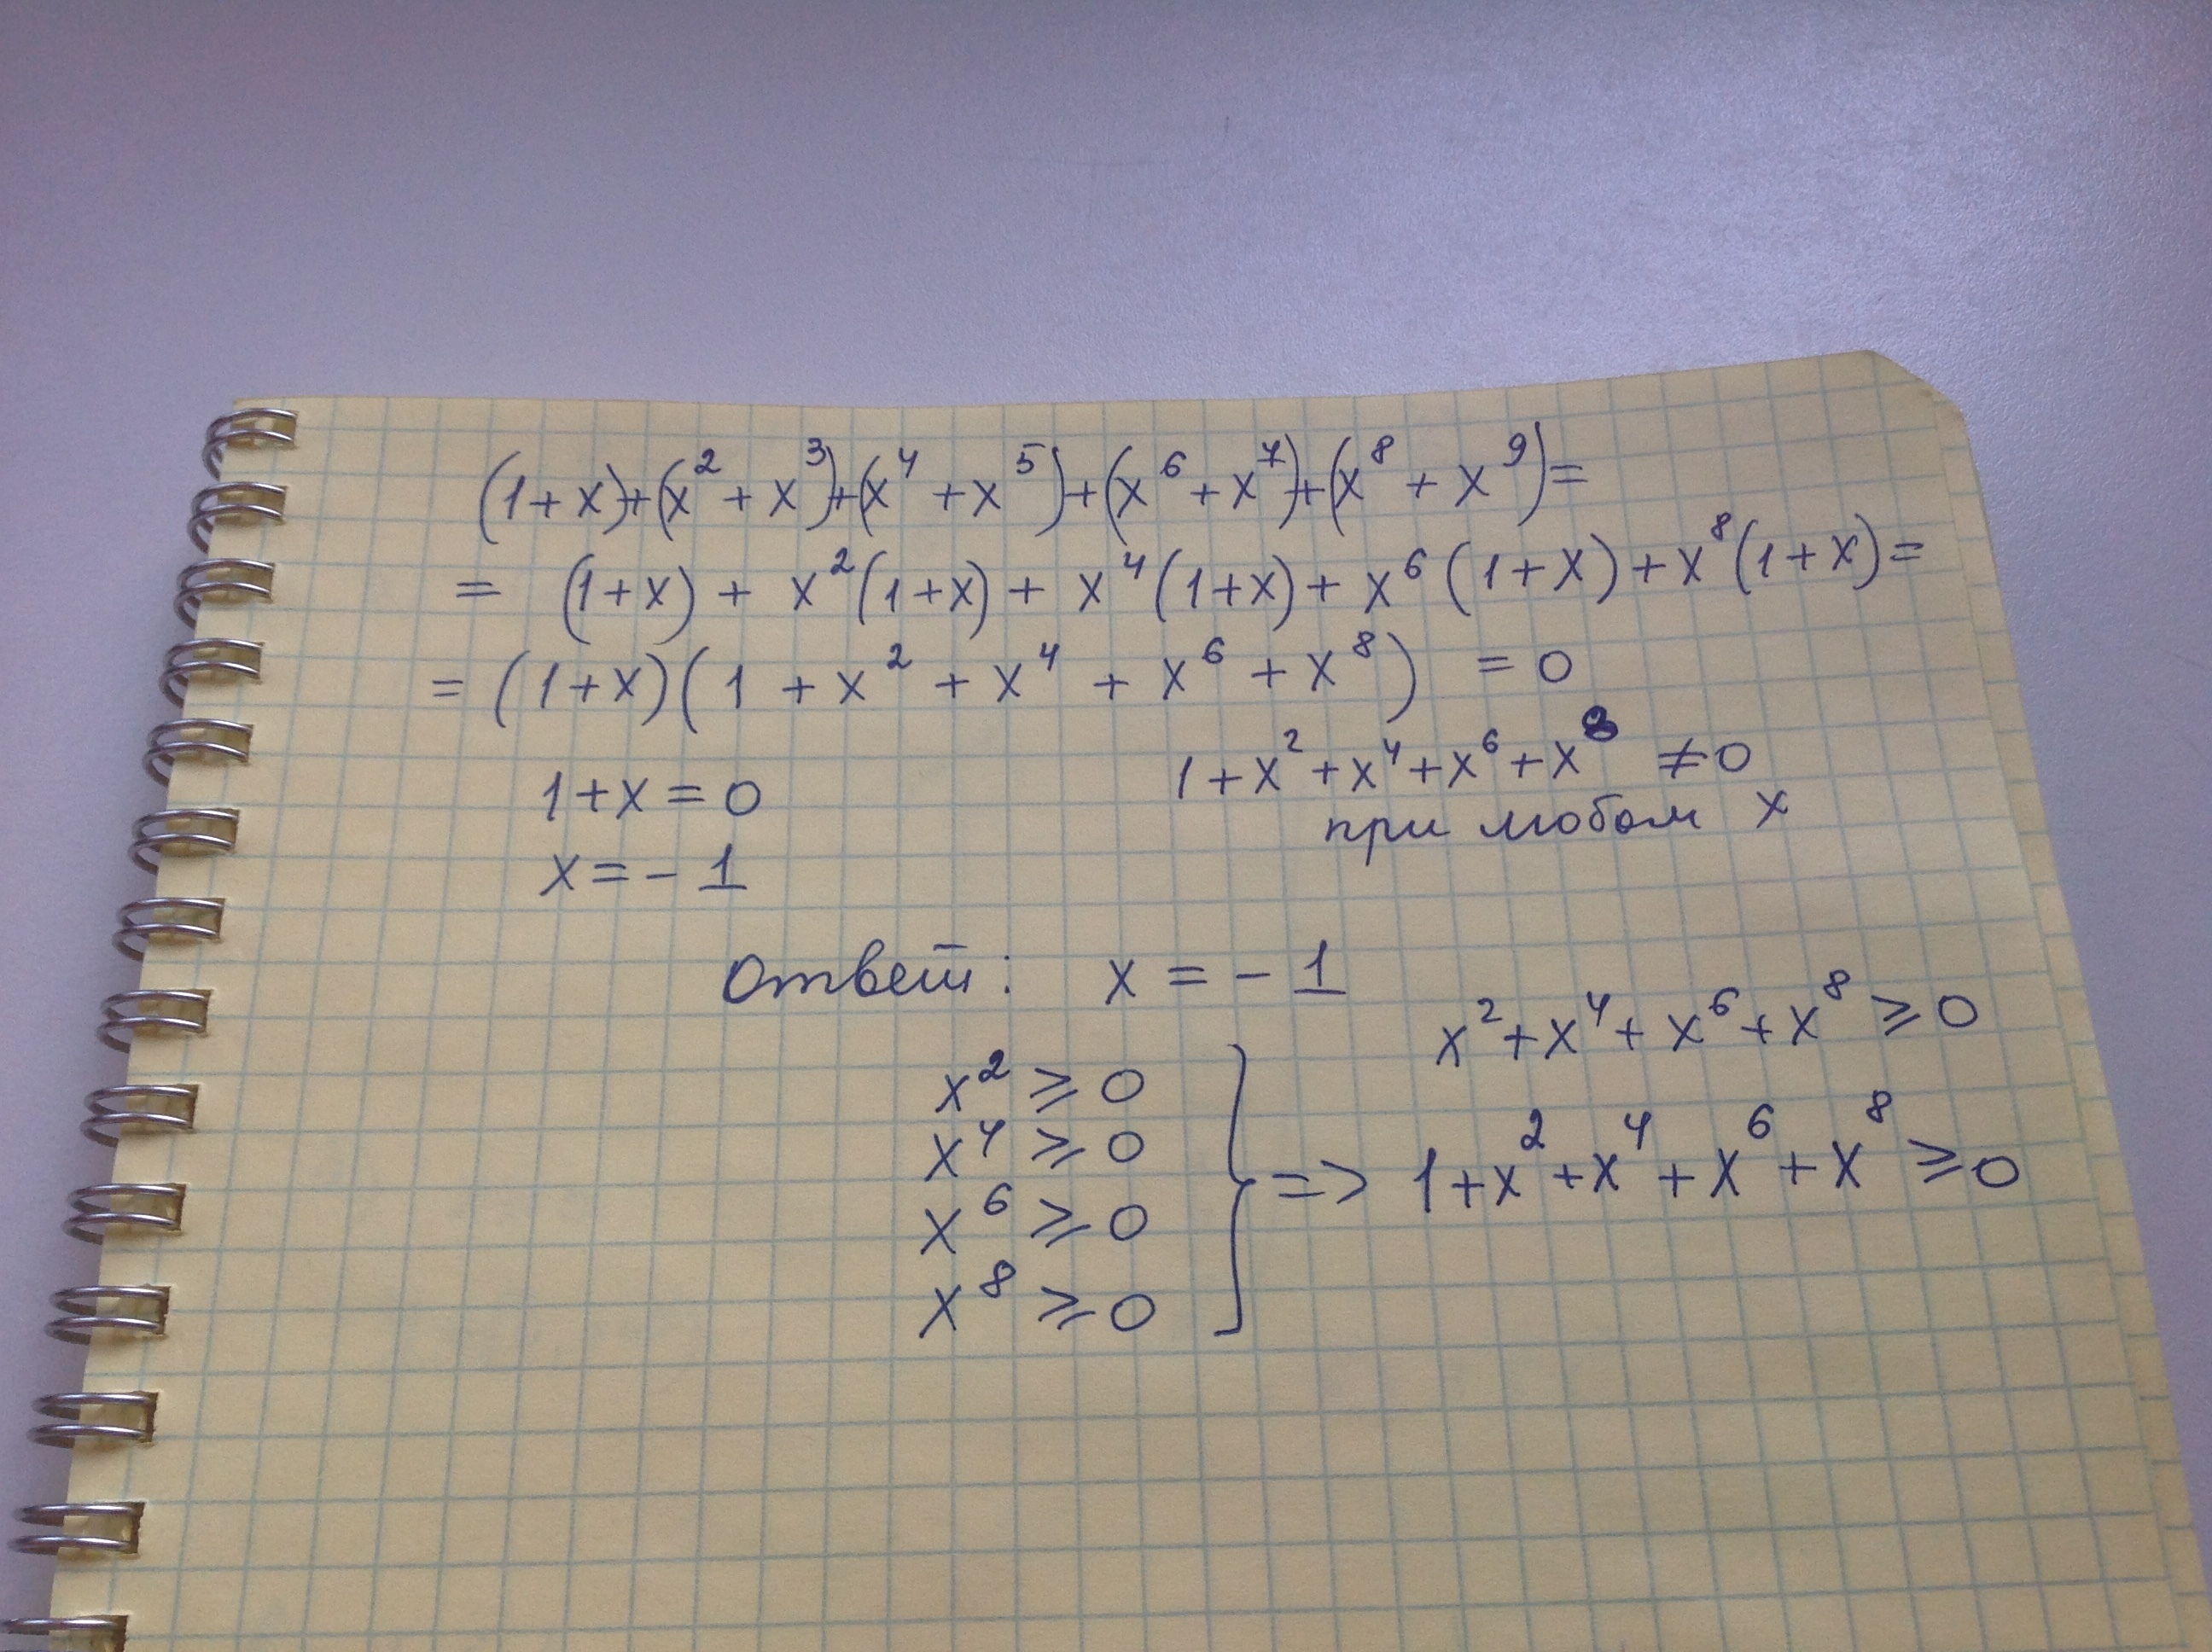 (1+x)+(x²+x³)+(x⁴+x⁵)+(x⁶+x⁷)+(x⁸+x⁹)=
= (1+x)+x²(1+x)+x⁴(1+x)+x⁶(1+x)+x⁸(1+x)=
=(1+x)(1+x²+x⁴+x⁶+x⁸) =0
1+x=0
x=-1
1+x²+x⁴+x⁶+x⁸ ≠0
при любом x
Ответ: x=-1
x²+x⁴+x⁶+x⁸⩾0
x²⩾0
x⁴⩾0
x⁶⩾0
x⁸⩾0
} => 1+x²+x⁴+x⁶+x⁸⩾0